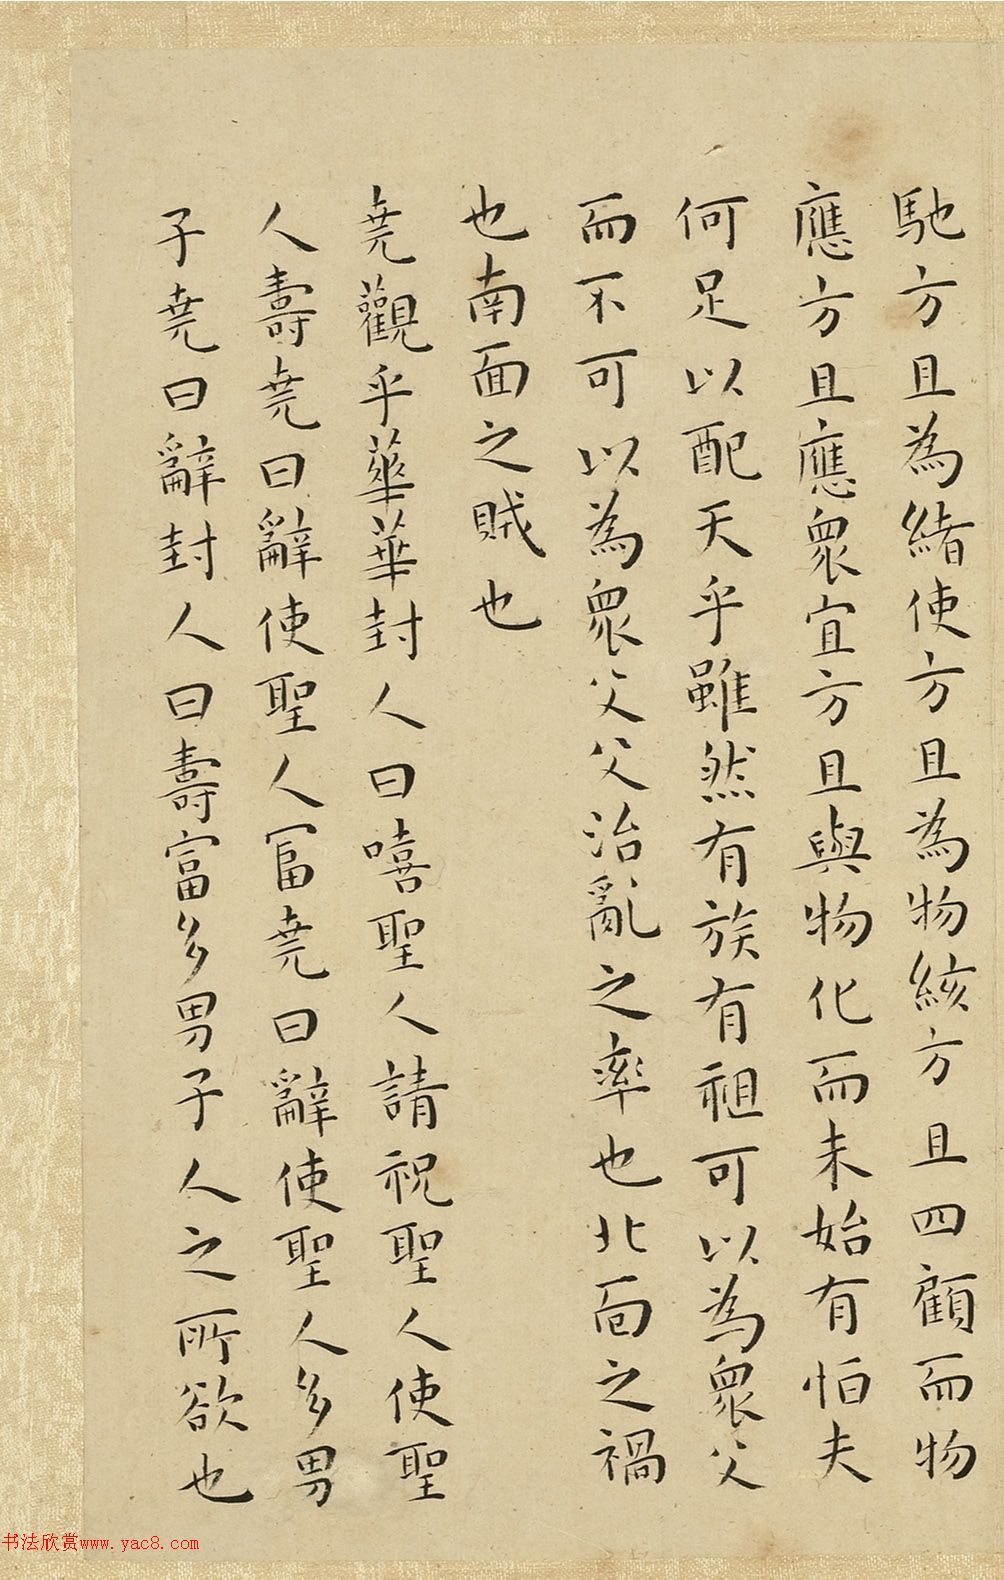 馳方且為緒使方且為物絯方且四顧而物
應方且應衆宜方且與物化而未始有怕夫
何足以配天乎雖然有族有祖可以為衆父
而不可以為衆父父治亂之率也北面之禍
也南面之賊也
堯觀乎華華封人曰嘻聖人請祝聖人使聖
人壽堯曰辭使聖人富堯曰辭使聖人多男
子堯曰辭封人曰壽富多男子人之所欲也
书法欣赏www.yac8.com